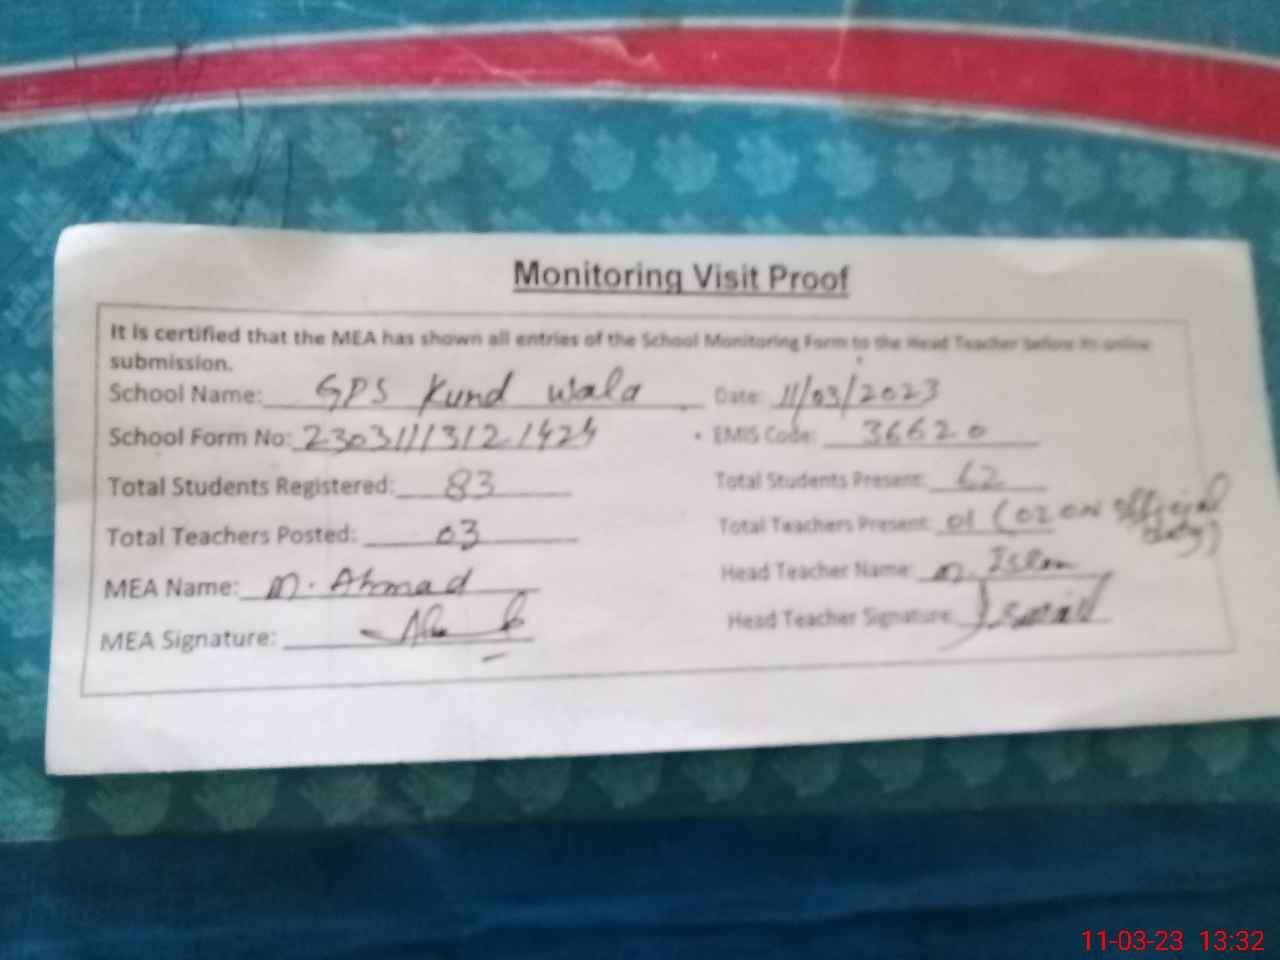 Monitoring Visit Proof
It is certified that the MEA has shown all entries of the School Monitoring Form to the Head Teacher before its online
submission.
School Name: GPS Kund Wala Date: 11/03/2023
School Form No: 23031113121424 EMIS Code: 36620
Total Students Registered: 83 Total Students Present: 62
Total Teachers Posted: 03 Total Teachers Present: 01 (02 on official
duty)
MEA Name: M. Ahmad Head Teacher Name: M.
MEA Signature: Head Teacher Signature:
11-03-23 13:32